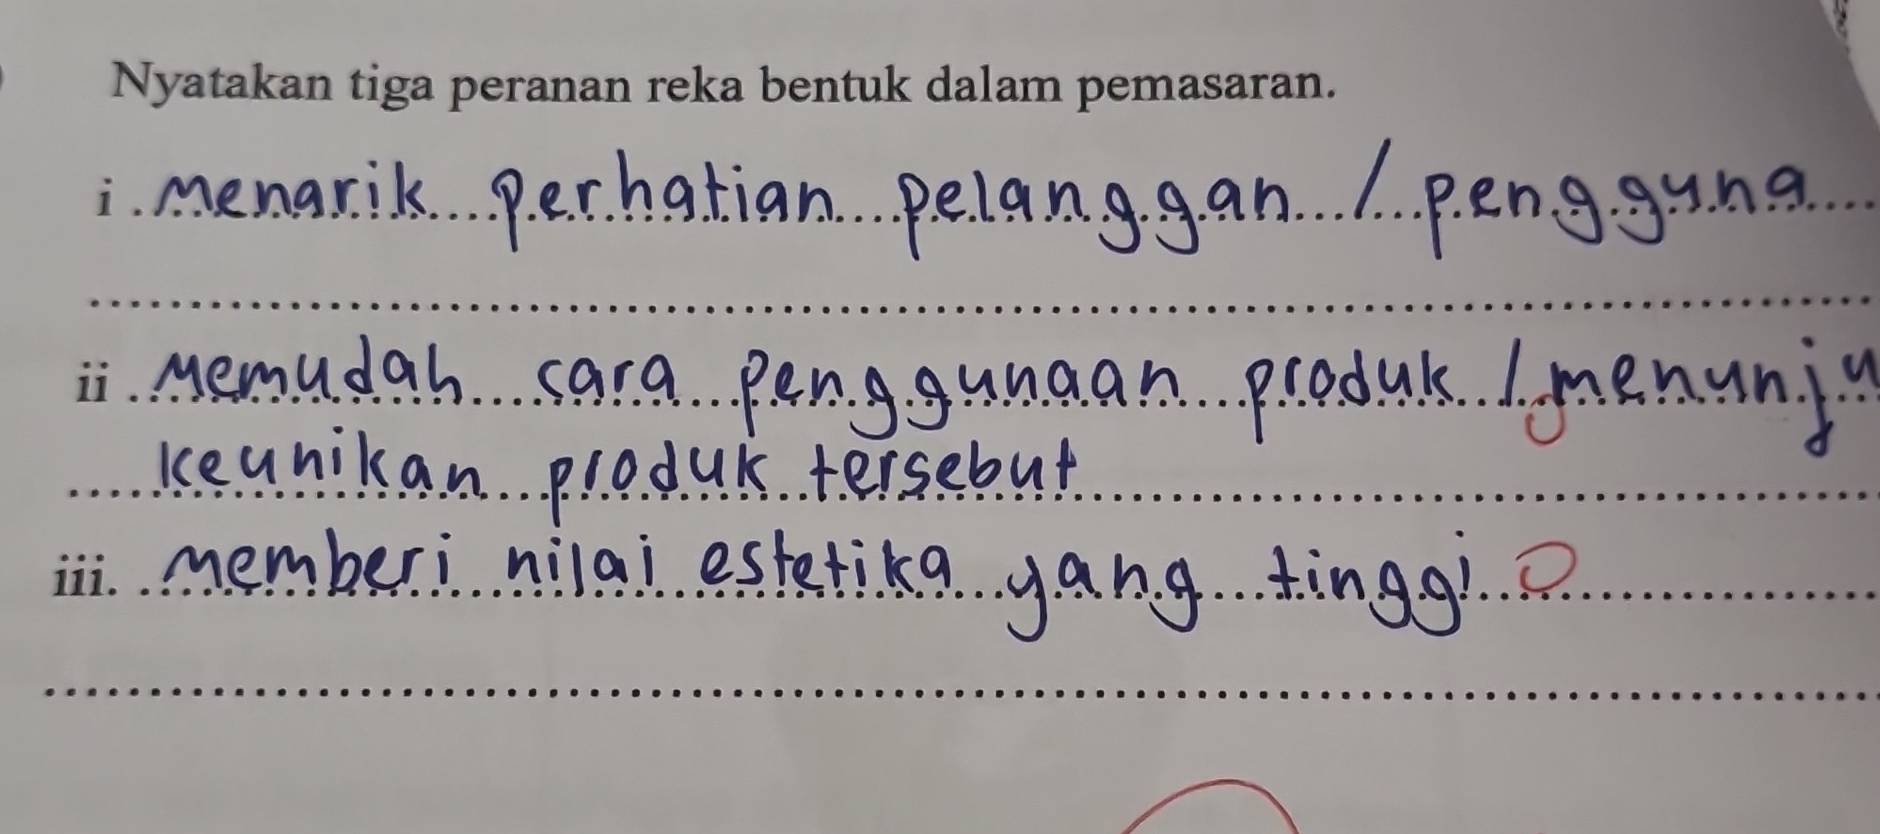 Nyatakan tiga peranan reka bentuk dalam pemasaran.
i. Menarik perhatian pelanggan / pengguna
ii. Memudah cara penggunaan produk / menunju
keunikan produk tersebut
iii. Memberi nilai estetika yang tinggi